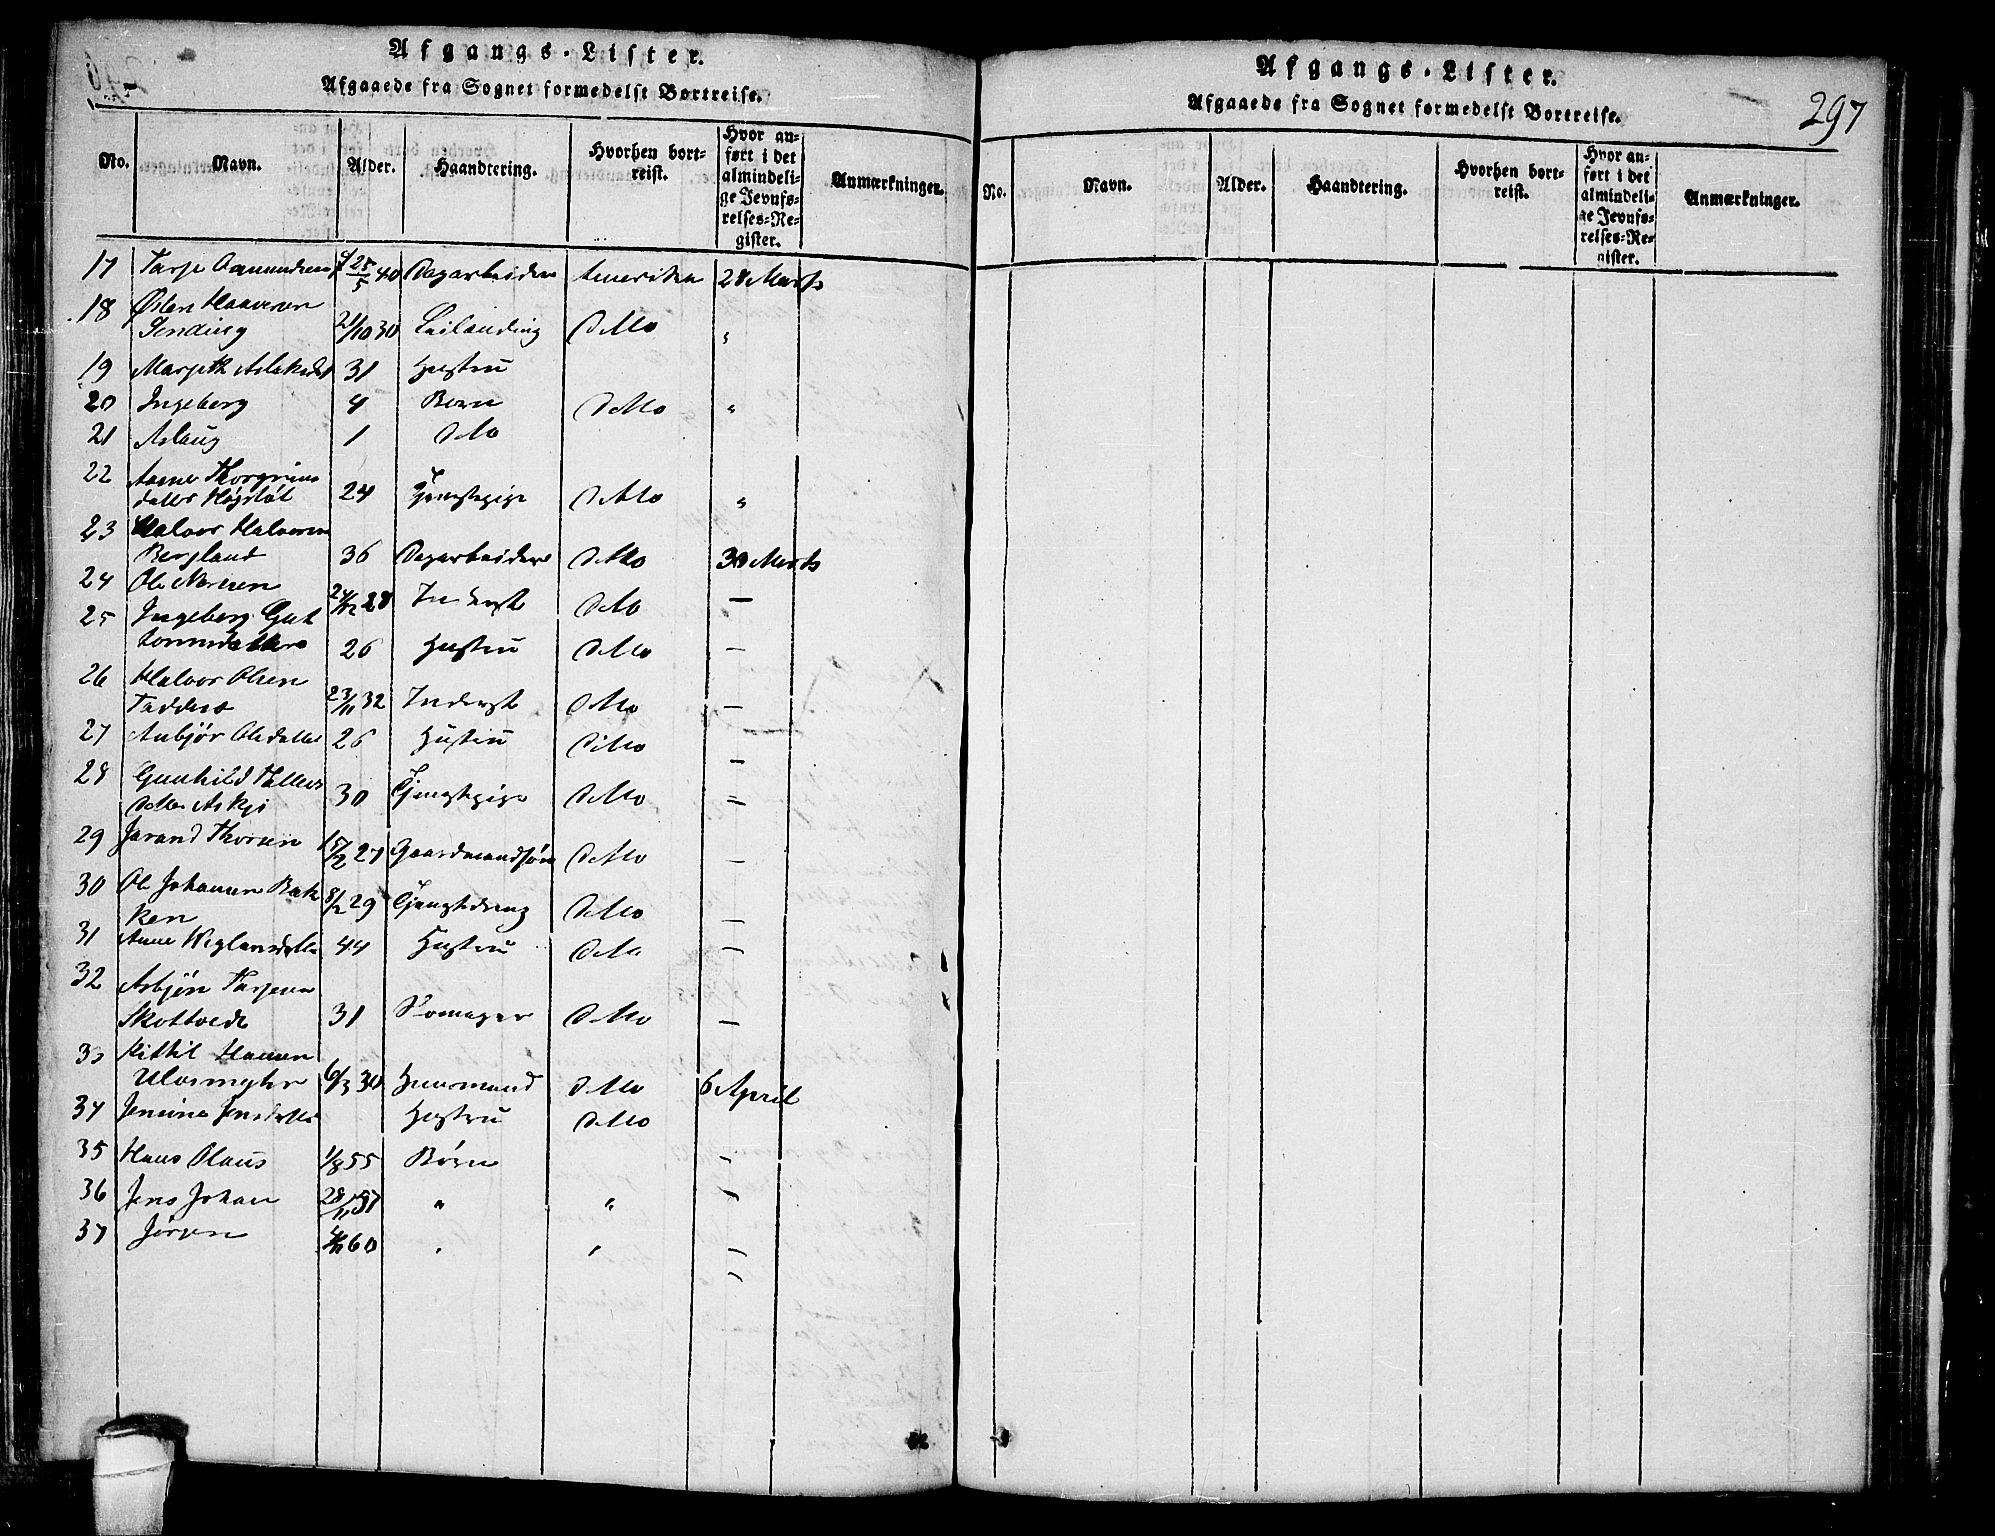 Afgangs-Lister.
Afgaaede fra Sognet formedelst Bortreise.
No. Navn. Alder. Haandtering. Hvorhen bort-reist. Hvor an-ført i det almindeli-ge Jevnfø-relses-Re-gister. Anmærkninger.
17 Tarje Aamundsen 25/5 40 Dagarbeider Amerika 28 Marts
18 Østen Haavorsen
21/10 30 Ditto "
19 Margith Aslaksdat 31 Hustru
20 Ingeborg 4 Børn Ditto "
21 Aslaug 1 Ditto
22 Anne Thorgrims
datter 24 Tjenestepige Ditto "
23 Halvor Halvorsen
Bergland 36 Dagarbeider Ditto 30 Marts
24 Ole 28 Inderst Ditto —
25 Ingeborg Gut
tormsdatter 26 Hustru Ditto —
26 Halvor Olsen
23/11 32 Inderst Ditto —
27 Anbjør Olsdatter 26 Hustru Ditto —
28 Gunhild
datter Askjs 30 Tjenestepige Ditto =
29 Jarand Thorsen 15/2 27 Gaardmandssøn Ditto —
30 Ole Johansen Bak
ken 8/2 29 Tjenestedreng Ditto —
31 Anne 44 Hustru Ditto —
32 Asbjørn Tarjesen
Skottvedt 31 Skomager Ditto —
33 Kittil Hansen
Ulvsmyhr 6/3 30 Huusmand Ditto 6 April
34 Jensine Jensdatter Hustru Ditto
35 Hans Olaus 1/8 55 Børn —
36 Jens Johan 28/11 57 " " —
37 Jørgen 60 " " —
Afgangs-Lister.
Afgaaede fra Sognet formedelst Bortreise.
297
No. Navn. Alder. Haandtering. Hvorhen bort-reist. Hvor an-ført i det almindeli-ge Jevnfø-relses-Re-gister. Anmærkninger.